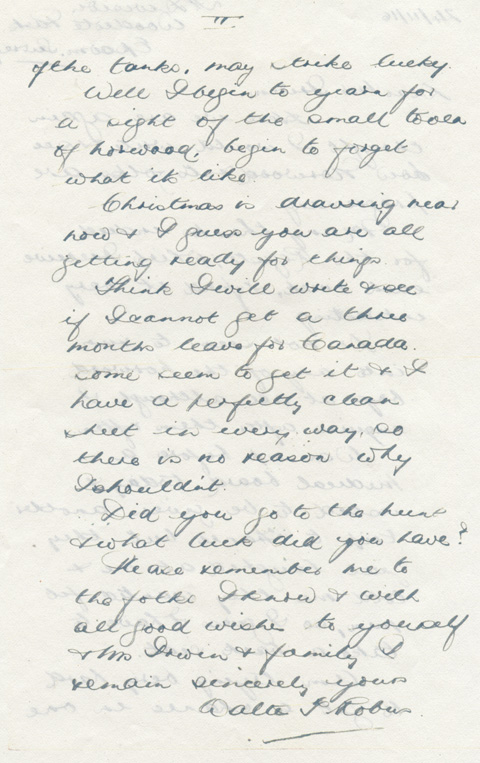 III
of the tanks, may strike lucky.
Well I begin to yearn for
a sight of the small town
of Norwood, begin to forget
what it's like.
Christmas is drawing near
now & I guess you are all
getting ready for things.
Think I will write & see
if I cannot get a three
months leave for Canada.
some seem to get it & I
have a perfectly clean
sheet in every way, so
there is no reason why
I shouldn't.
Did you go to the hunt
& what luck did you have?
Please remember me to
the folks I know & with
all good wishes to yourself
& Mrs Irwin & family I
remain sincerely yours
Walter